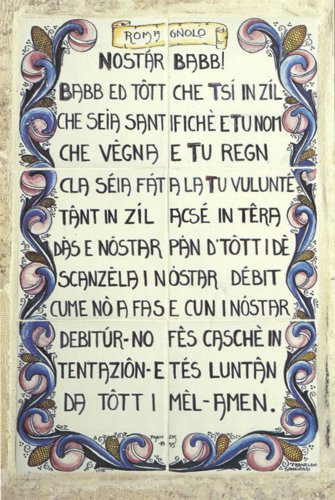 ROMAGNOLO
NOSTÁR BABB!
BABB ED TÔTT CHE TSÍ IN ZÍL
CHE SEÌA SANTIFICHÈ E TU NOM
CHE VÊGNA E TU REGN
CLA SÉIA FÁTA LA TU VULUNTÉ
TÂNT IN ZÍL ACSÉ IN TÊRA
DÀS E NÔSTAR PÁN D'TÔTT I DÈ
SCANZÈLA I NÓSTAR DÉBIT
CUME NÔ A FAS E CUN I NÓSTAR
DEBITÚR-NO FÊS CASCHÈ IN
TENTAZIÔN-E TÉS LUNTÂN
DA TÔTT I MÊL-AMEN.